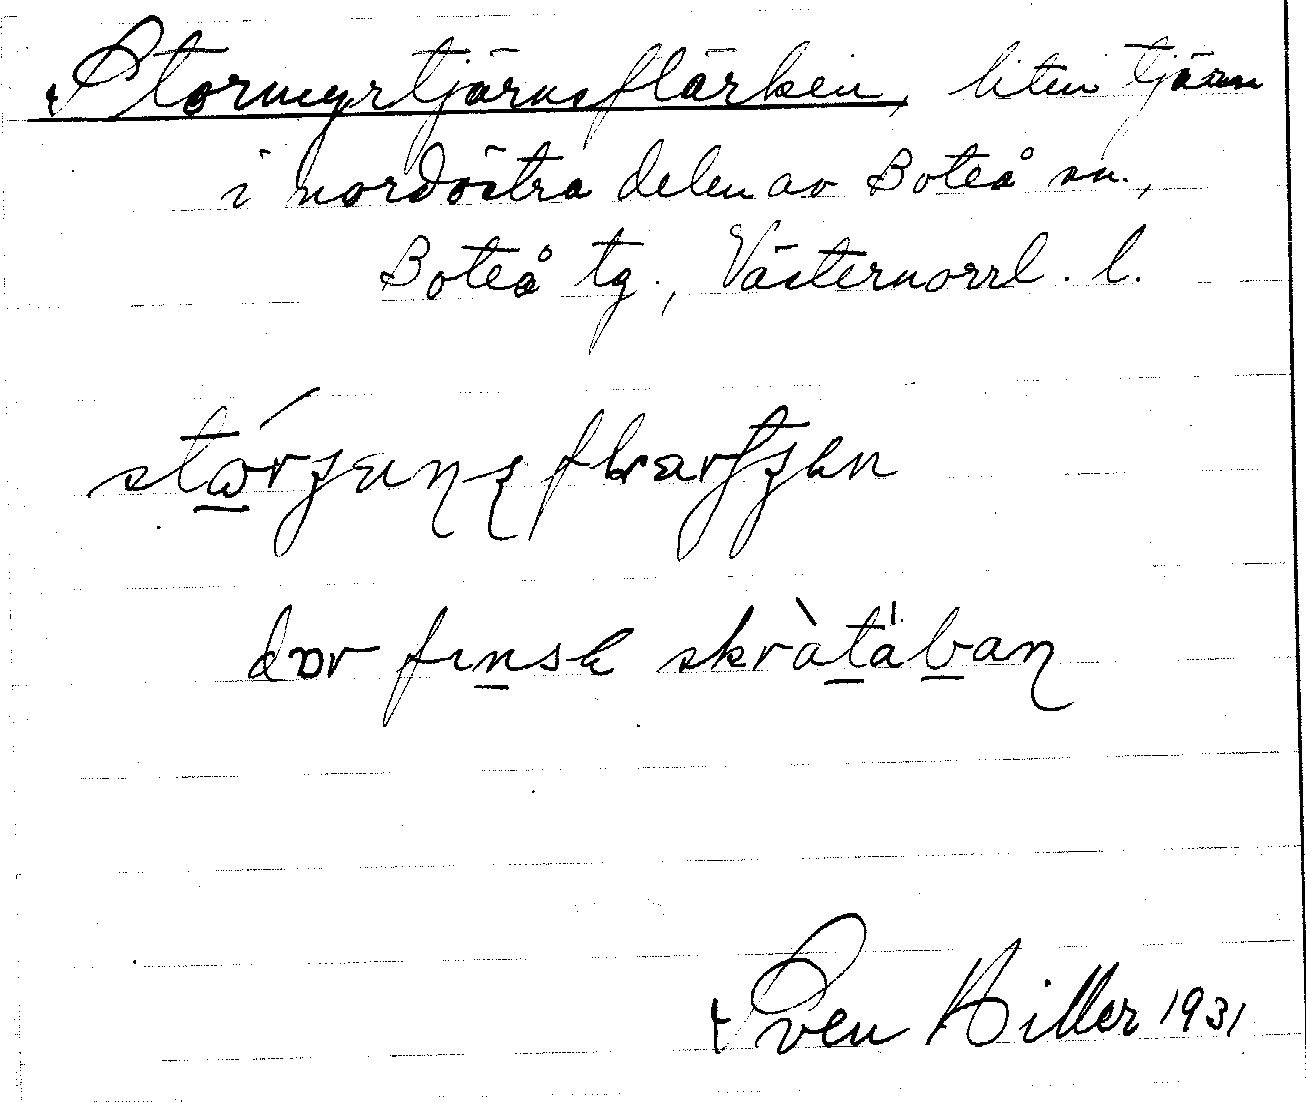 Stormyrtjärnsflärken, liten tjärn
i nordöstra delen av Boteå sn.,
Boteå tg., Västernorrl. l.
dær finsk skràtában
Sven Hiller 1931